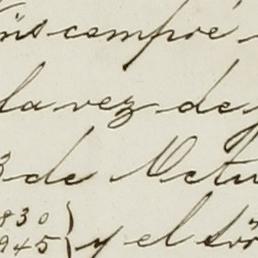 compré
la vez de
3 de Octu
830
945 } y el